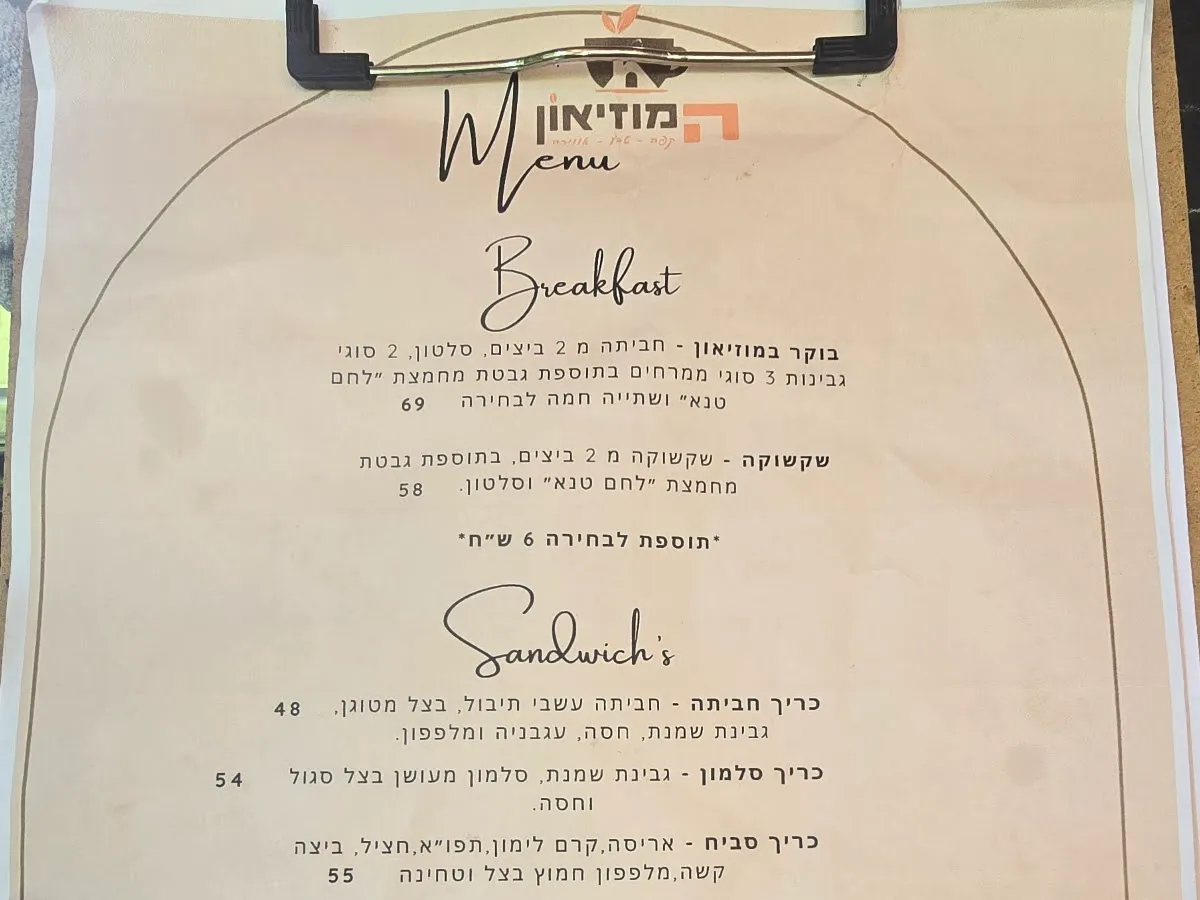 המוזיאון
קפה - טבע - אווירה
Menu
Breakfast
בוקר במוזיאון - חביתה מ 2 ביצים, סלטון, 2 סוגי
גבינות 3 סוגי ממרחים בתוספת גבטת מחמצת ״לחם
טנא״ ושתייה חמה לבחירה 69
שקשוקה - שקשוקה מ 2 ביצים, בתוספת גבטת
מחמצת ״לחם טנא״ וסלטון. 58
*תוספת לבחירה 6 ש״ח*
Sandwich's
כריך חביתה - חביתה עשבי תיבול, בצל מטוגן, 48
גבינת שמנת, חסה, עגבניה ומלפפון.
כריך סלמון - גבינת שמנת, סלמון מעושן בצל סגול 54
וחסה.
כריך סביח - אריסה,קרם לימון,תפו״א,חציל, ביצה
קשה,מלפפון חמוץ בצל וטחינה 55